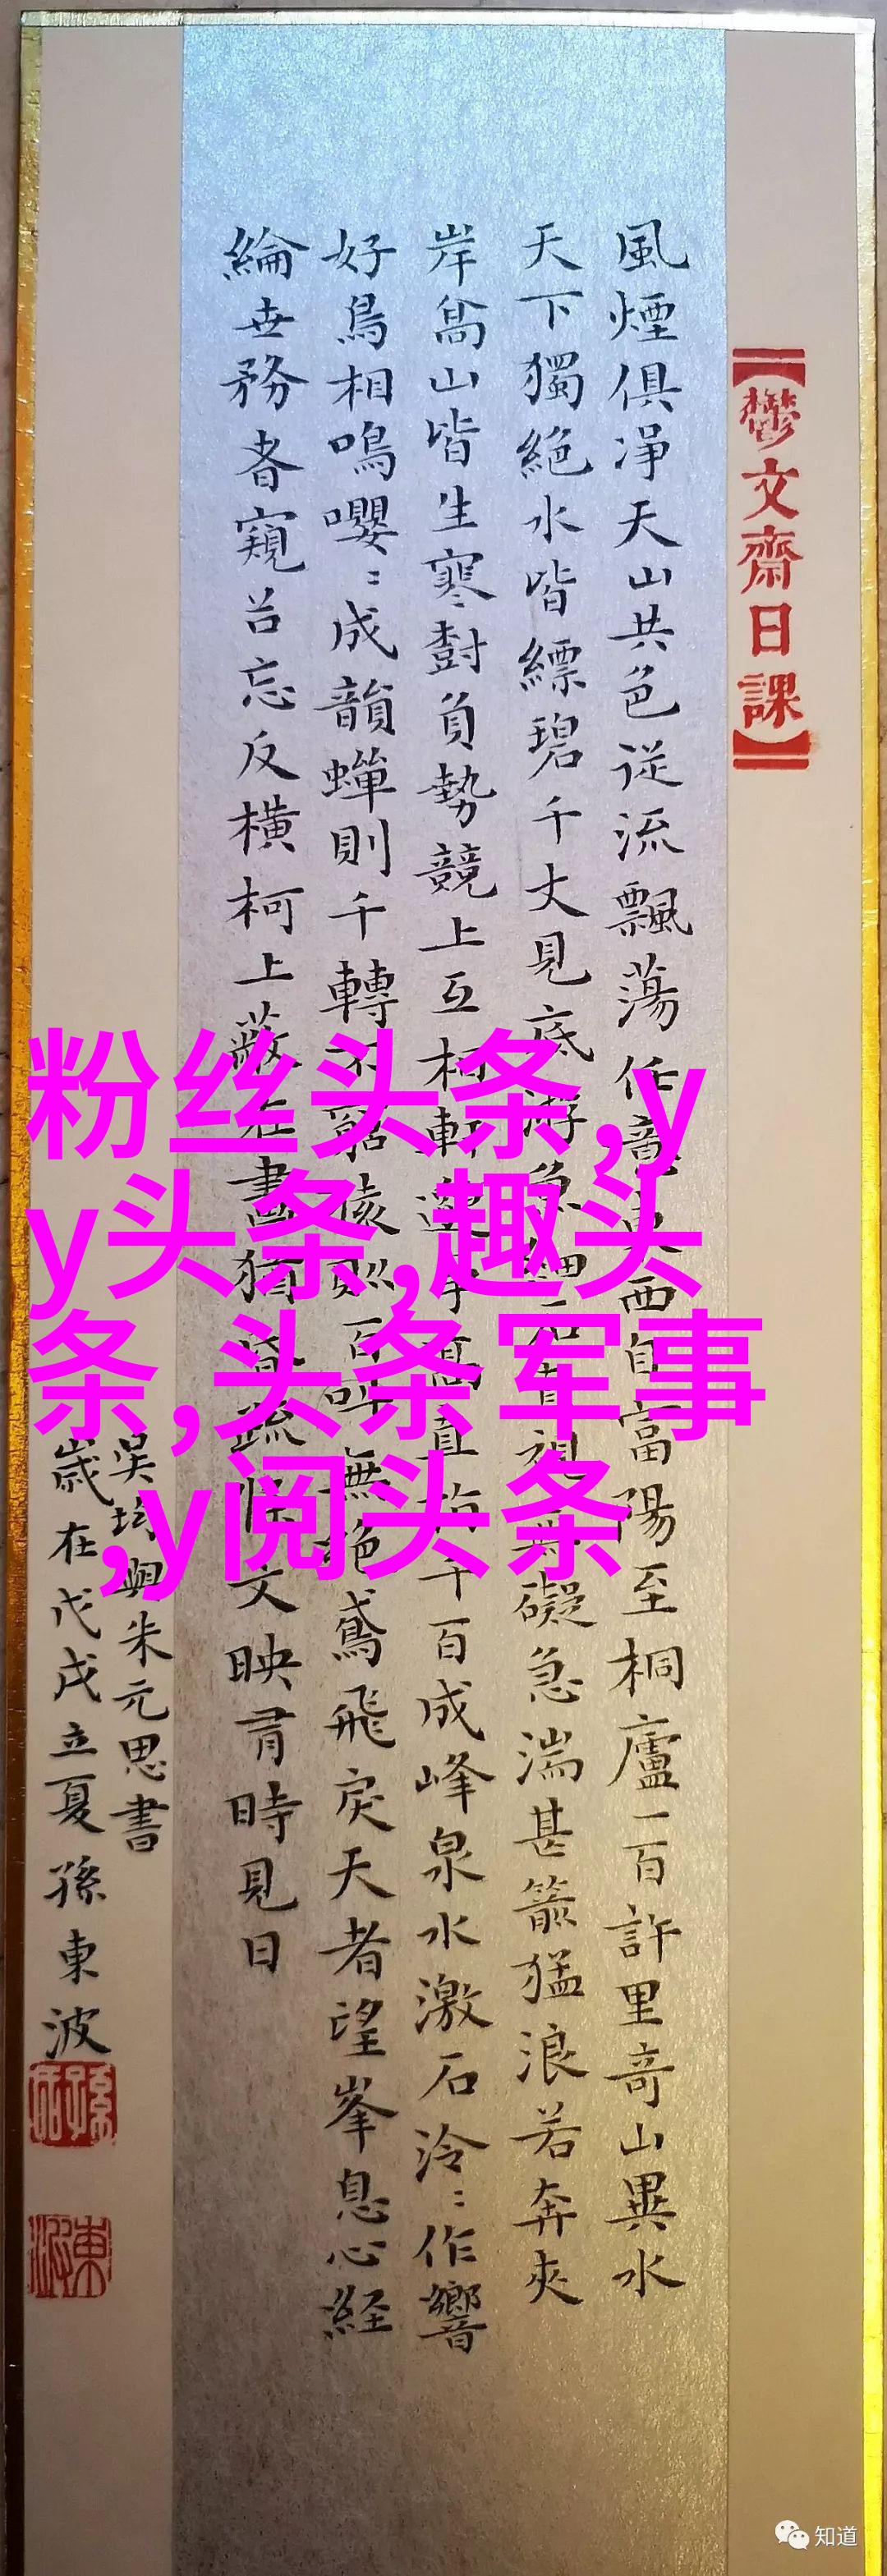 【鬱文齋日課】
風煙俱淨天山共色従流飄蕩任意東西自富陽至桐廬一百許里奇山異水
天下獨絶水皆縹碧千丈見底游魚細石直視無礙急湍甚箭猛浪若奔夾
岸髙山皆生寒樹負勢競上互相軒邈爭髙直指千百成峰泉水激石泠〻作響
好鳥相鳴嚶〻成韻蟬則千轉不窮猿則百叫無絶鳶飛戾天者望峯息心経
綸世務者窺谷忘反橫柯上蔽在晝猶昏疏條交映有時見日
吳均與朱元思書
歲在戊戌立夏孫東波
粉丝头条,y
y头条,趣头
条,头条军事
,y阅头条
知道